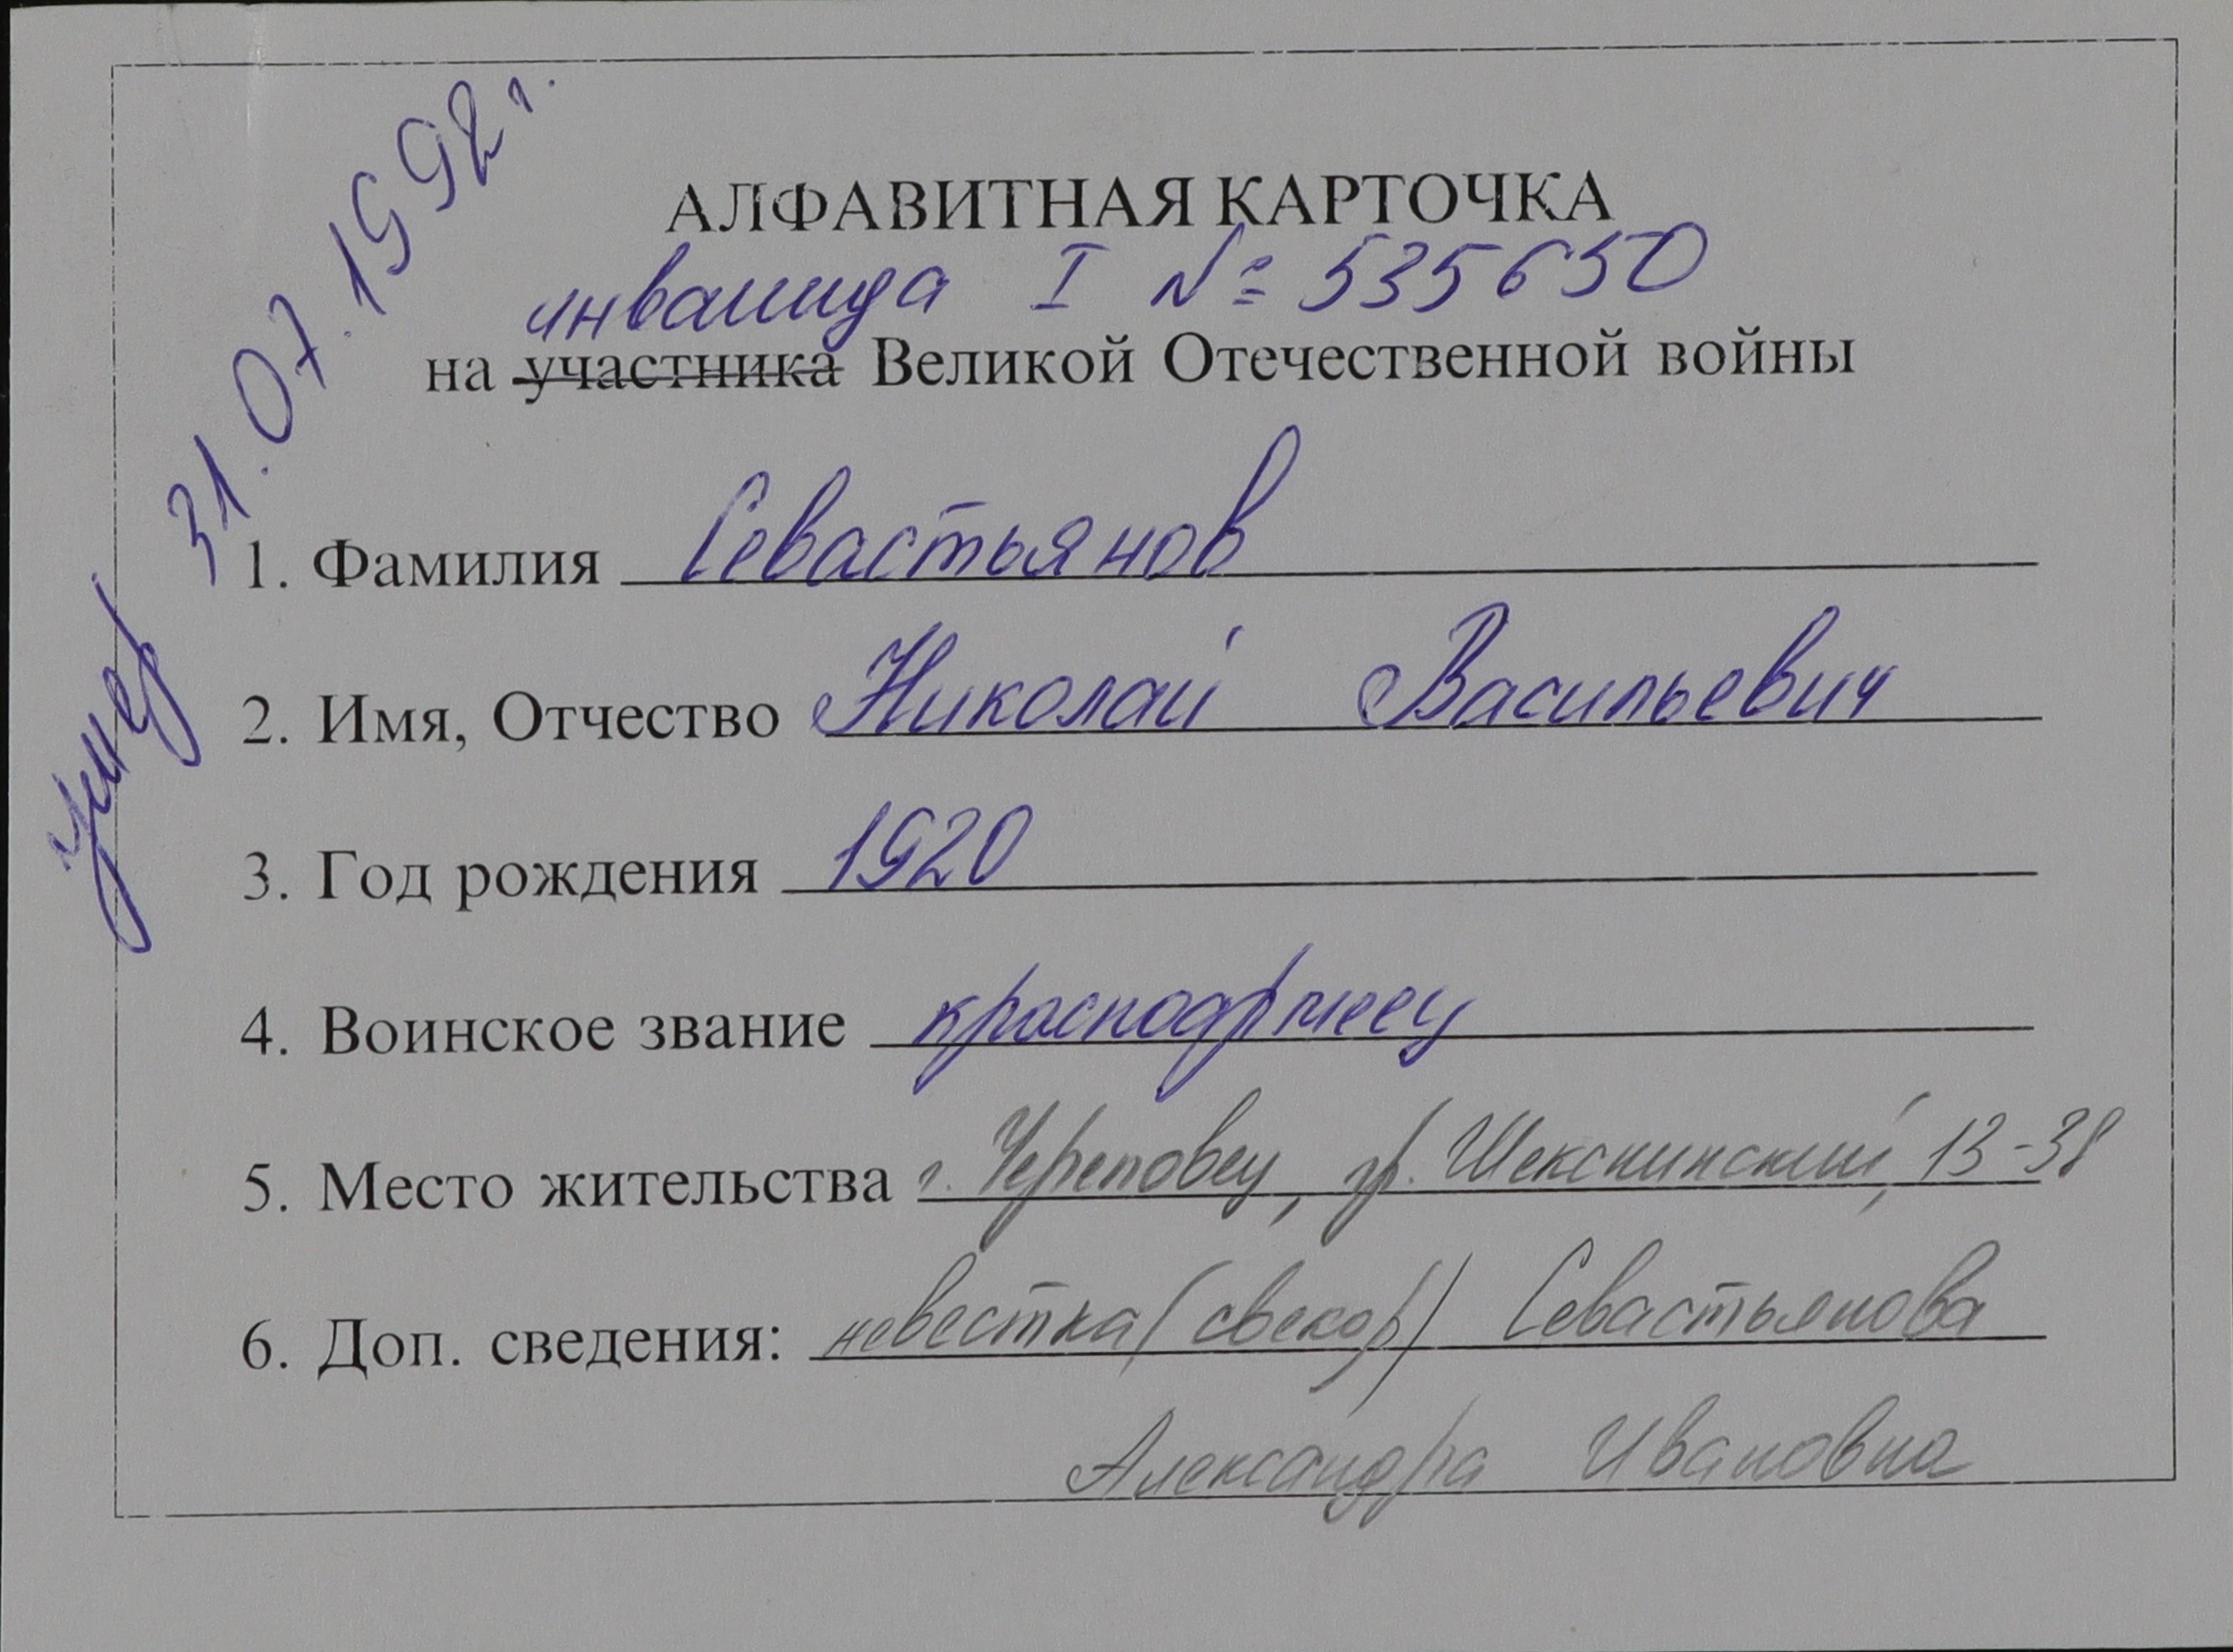 умер 31.07.1992 г.
АЛФАВИТНАЯ КАРТОЧКА
инвалида I № 535650
на участника Великой Отечественной войны
1. Фамилия Севастьянов
2. Имя, Отчество Николай Васильевич
3. Год рождения 1920
4. Воинское звание красноармеец
5. Место жительства г. Череповец, пр. Шекснинский, 13-38
6. Доп. сведения: невестка (свекор) Севастьянова
Александра Ивановна